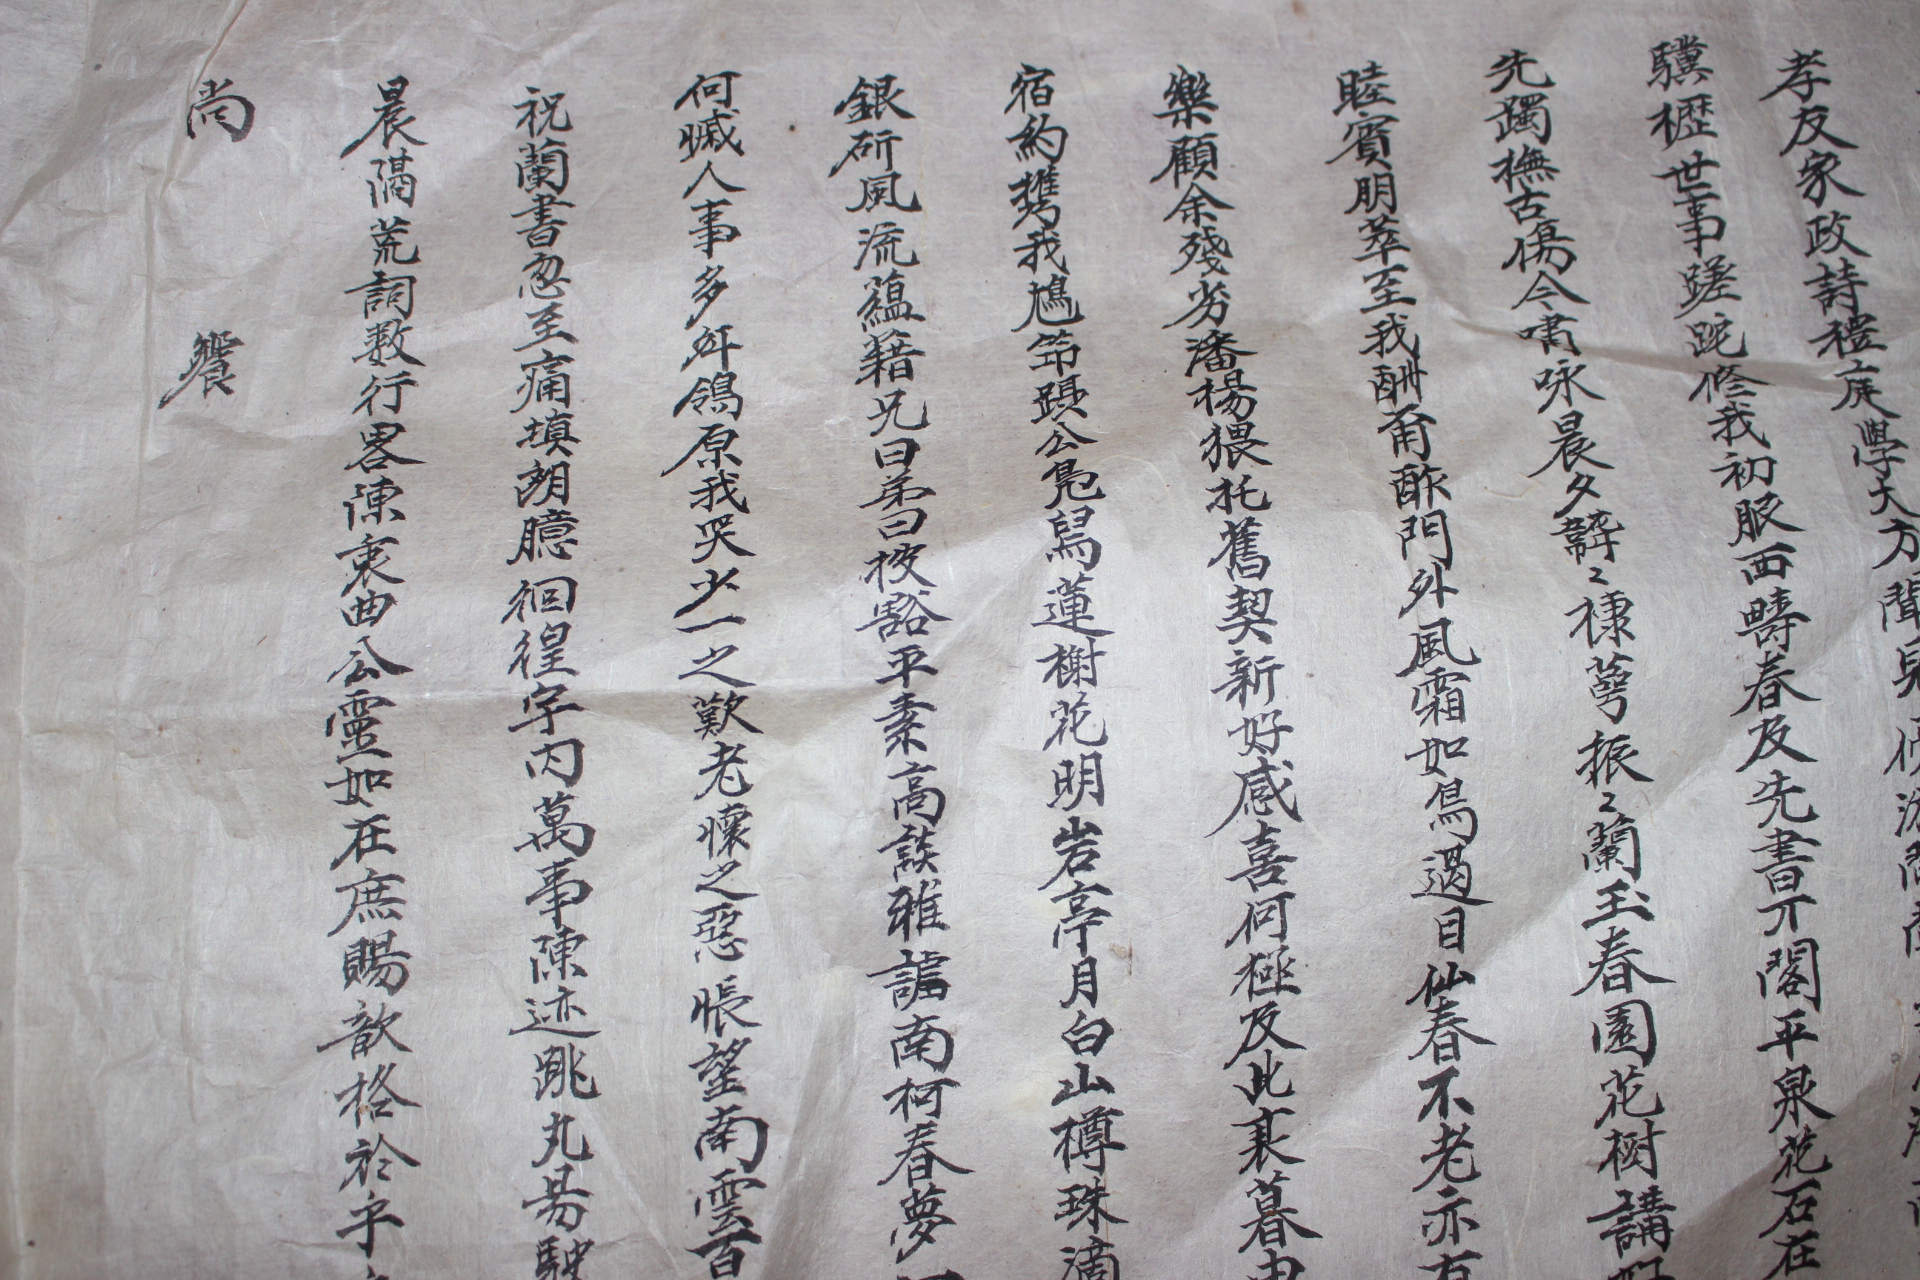 孝友家政詩禮庭學大方聞見
驥櫪世事蹉跎修我初服西疇春及先書亓閣平泉花石在
先躅撫古傷今嘯咏晨夕韡〻棣萼振〻蘭玉春園花樹講
睦賓朋萃至我酬甭酢門外風霜如鳥過目仙春不老亦有
樂顧余殘劣潘楊猥托舊契新好感喜何極及此衰暮
宿約携我鳩笻躡公鳧舄蓮榭花明岩亭月白山樽珠滴
銀斫風流蘊藉兄曰弟曰披豁平素高談雅謔南柯春夢
何慽人事多舛鴒原我哭少一之歎老懷之惡悵望南雲百
祝蘭書忽至痛填胡臆徊徨字內萬事陳迹跳丸昜駛
晨隔荒詞数行畧陳衷曲公靈如在庶賜歆格於乎
尚 饗